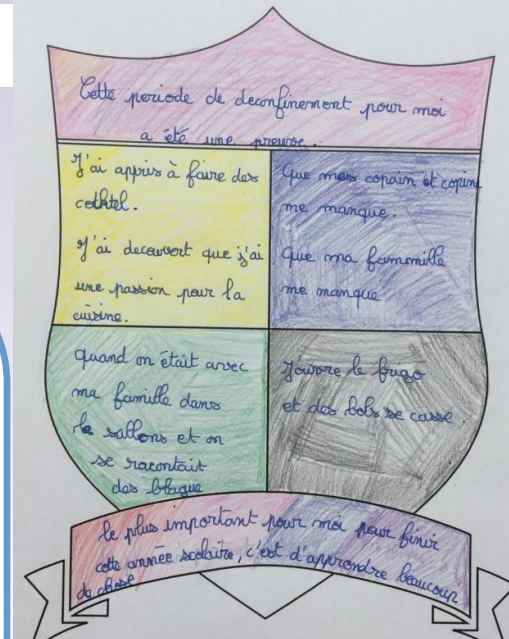 Cette periode de deconfinement pour moi
a été une preuve.
J'ai appris à faire des
cothtel.
J'ai decouvert que j'ai
une passion pour la
cuisine.
Que mes copain et copine
me manque.
Que ma fammille
me manque
quand on était avec
ma famille dans
le sallons et on
se racontait
des blague
J'ouvre le frigo
et des bols se casse.
le plus important pour moi pour finir
cette année scolaire, c'est d'apprendre beaucoup
de chose